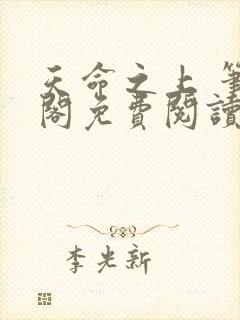 天命之上 筆
閣免費閱讀
李光新